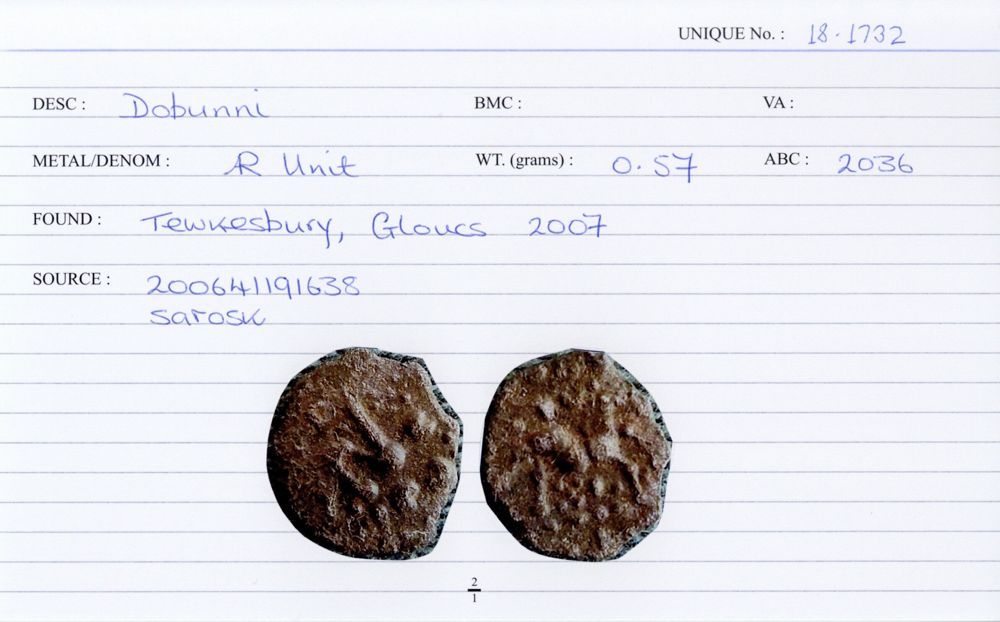 UNIQUE No. : 18.1732
DESC : Dobunni BMC : VA :
METAL/DENOM : AR Unit WT. (grams) : 0.57 ABC : 2036
FOUND : Tewkesbury, Gloucs 2007
SOURCE : 200641191638
sarosk
2
1